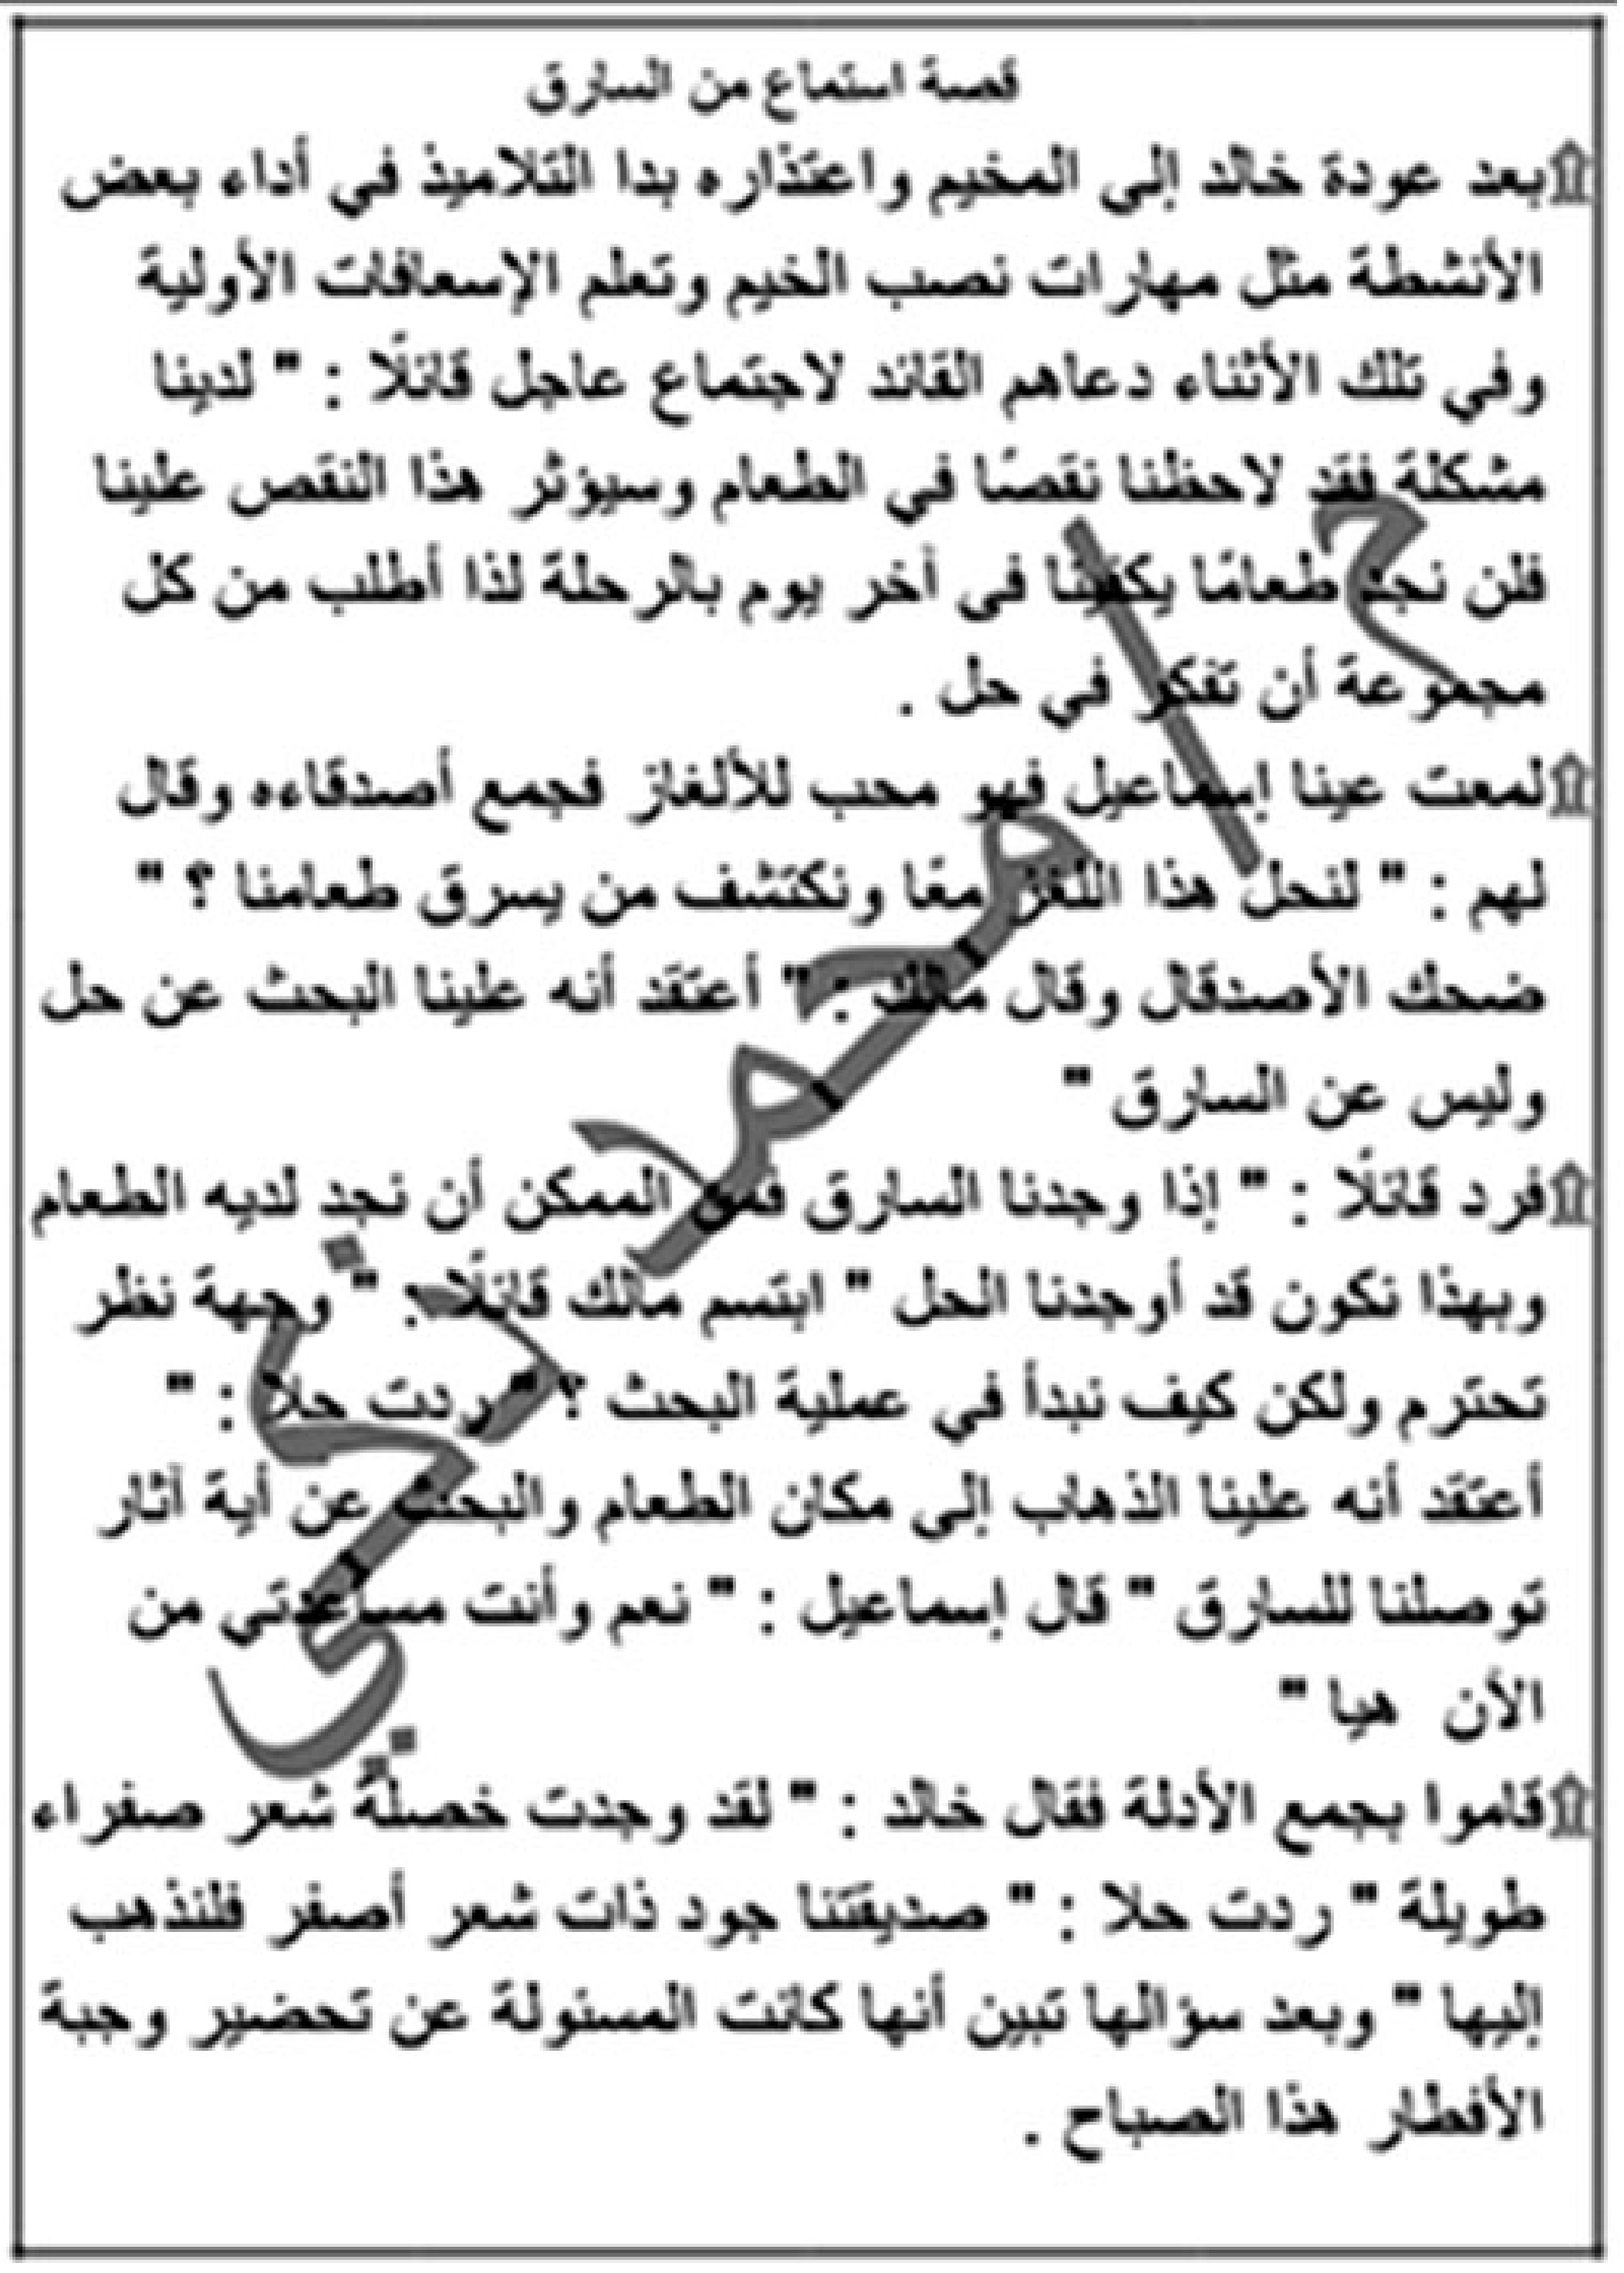 قصة استماع من السارق
بعد عودة خالد إلى المخيم واعتذاره بدا التلاميذ في أداء بعض
الأنشطة مثل مهارات نصب الخيم وتعلم الإسعافات الأولية
وفي تلك الأثناء دعاهم القائد لاجتماع عاجل قائلًا : " لدينا
مشكلة فقد لاحظنا نقصًا في الطعام وسيؤثر هذا النقص علينا
فلن نجد طعامًا يكفينا فى آخر يوم بالرحلة لذا أطلب من كل
مجموعة أن تفكر في حل .
لمعت عينا إسماعيل فهو محب للألغاز فجمع أصدقاءه وقال
لهم : " لنحل هذا اللغز معًا ونكتشف من يسرق طعامنا ؟ "
ضحك الأصدقال وقال مالك : " أعتقد أنه علينا البحث عن حل
وليس عن السارق "
فرد قائلًا : " إذا وجدنا السارق فمن الممكن أن نجد لديه الطعام
وبهذا نكون قد أوجدنا الحل " ابتسم مالك قائلًا : " وجهة نظر
تحترم ولكن كيف نبدأ في عملية البحث ؟ " ردت حلا : "
أعتقد أنه علينا الذهاب إلى مكان الطعام والبحث عن أية آثار
توصلنا للسارق " قال إسماعيل : " نعم وأنت مساعدتي من
الآن هيا "
قاموا بجمع الأدلة فقال خالد : " لقد وجدت خصلة شعر صفراء
طويلة " ردت حلا : " صديقتنا جود ذات شعر أصفر فلنذهب
إليها " وبعد سؤالها تبين أنها كانت المسئولة عن تحضير وجبة
الأفطار هذا الصباح .